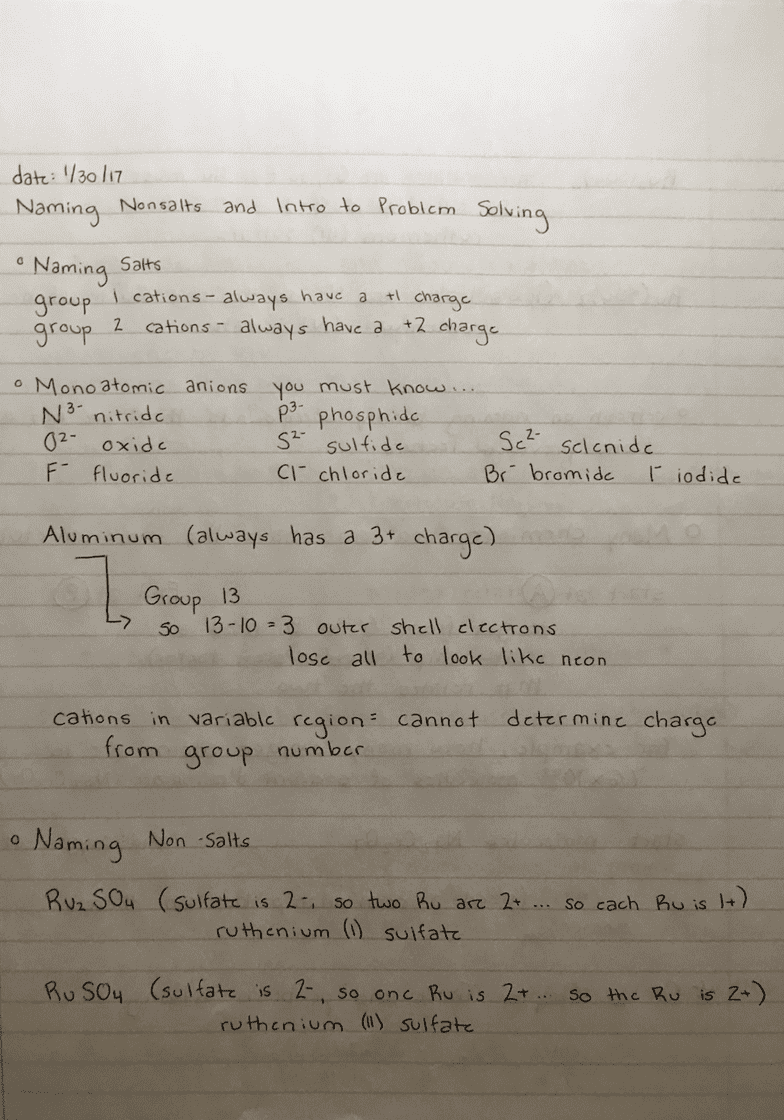 date: 1/30/17
Naming Nonsalts and Intro to Problem Solving
° Naming Salts
group 1 cations - always have a +1 charge
group 2 cations - always have a +2 charge
° Monoatomic anions you must know...
N³⁻ nitride P³⁻ phosphide
O²⁻ oxide S²⁻ sulfide Se²⁻ selenide
F⁻ fluoride Cl⁻ chloride Br⁻ bromide I⁻ iodide
Aluminum (always has a 3+ charge)
Group 13
so 13-10 = 3 outer shell electrons
lose all to look like neon
cations in variable region = cannot determine charge
from group number
° Naming Non-Salts
Ru₂SO₄ (sulfate is 2-, so two Ru are 2+ ... so each Ru is 1+)
ruthenium (I) sulfate
RuSO₄ (sulfate is 2-, so one Ru is 2+.. so the Ru is 2+)
ruthenium (II) sulfate